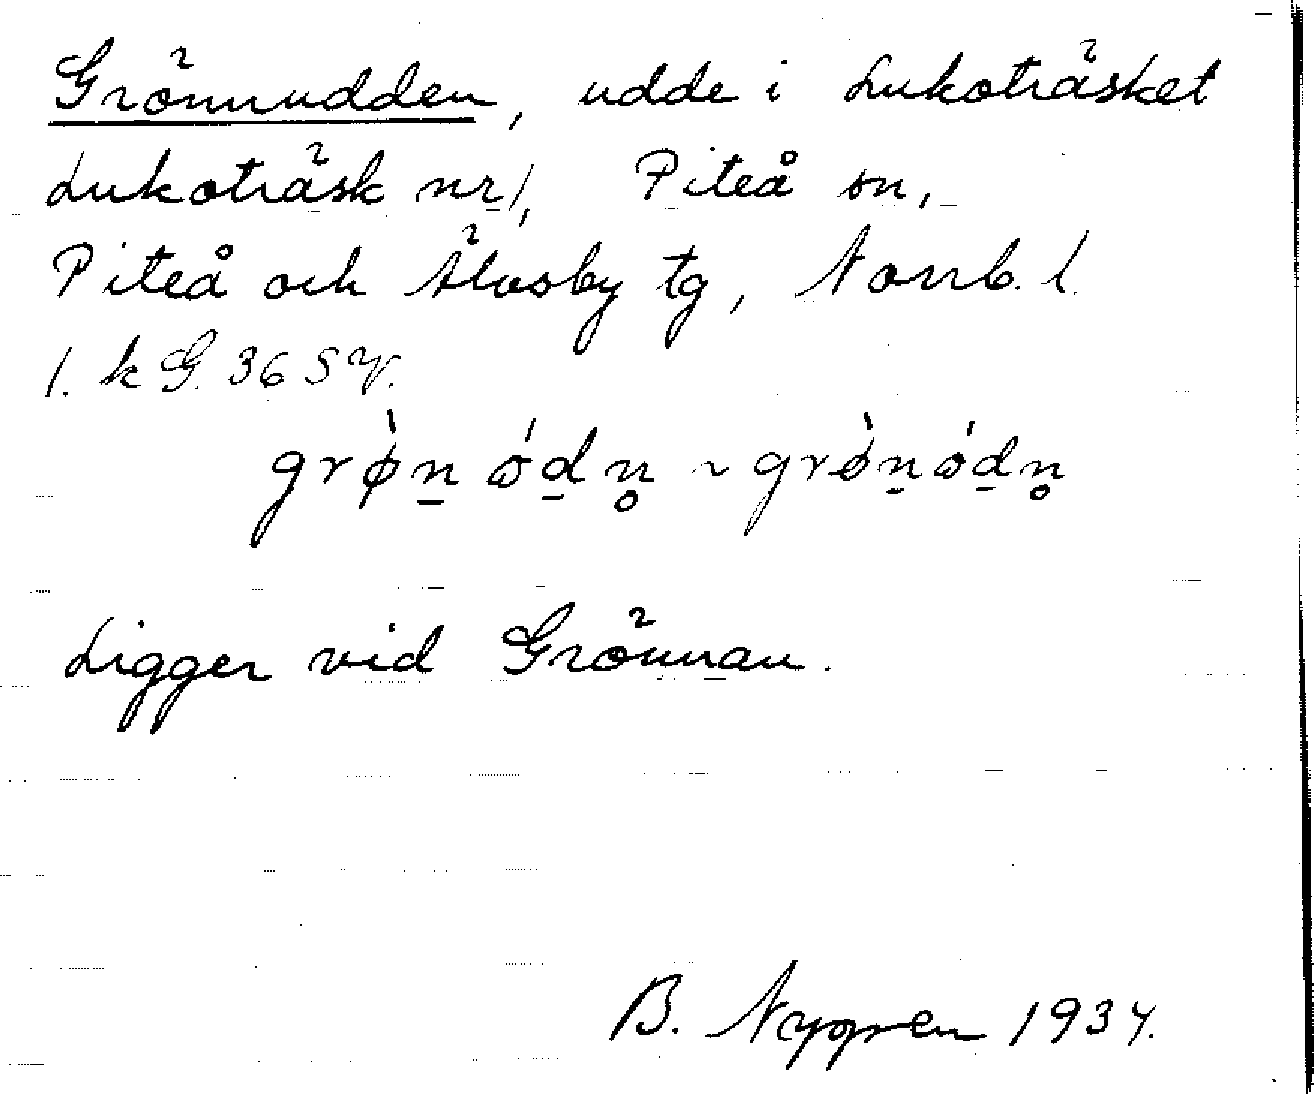 Grönnudden, udde i Lukoträsket
Lukoträsk nr 1, Piteå sn,
Piteå och Älvsby tg, Norrb. l.
1. k G. 36 SV.
grø̀n̠ ó̵d̠n̥ ~ grɵ̀n̠ód̠n̥
Ligger vid Grönnan.
B. Nygren 1934.